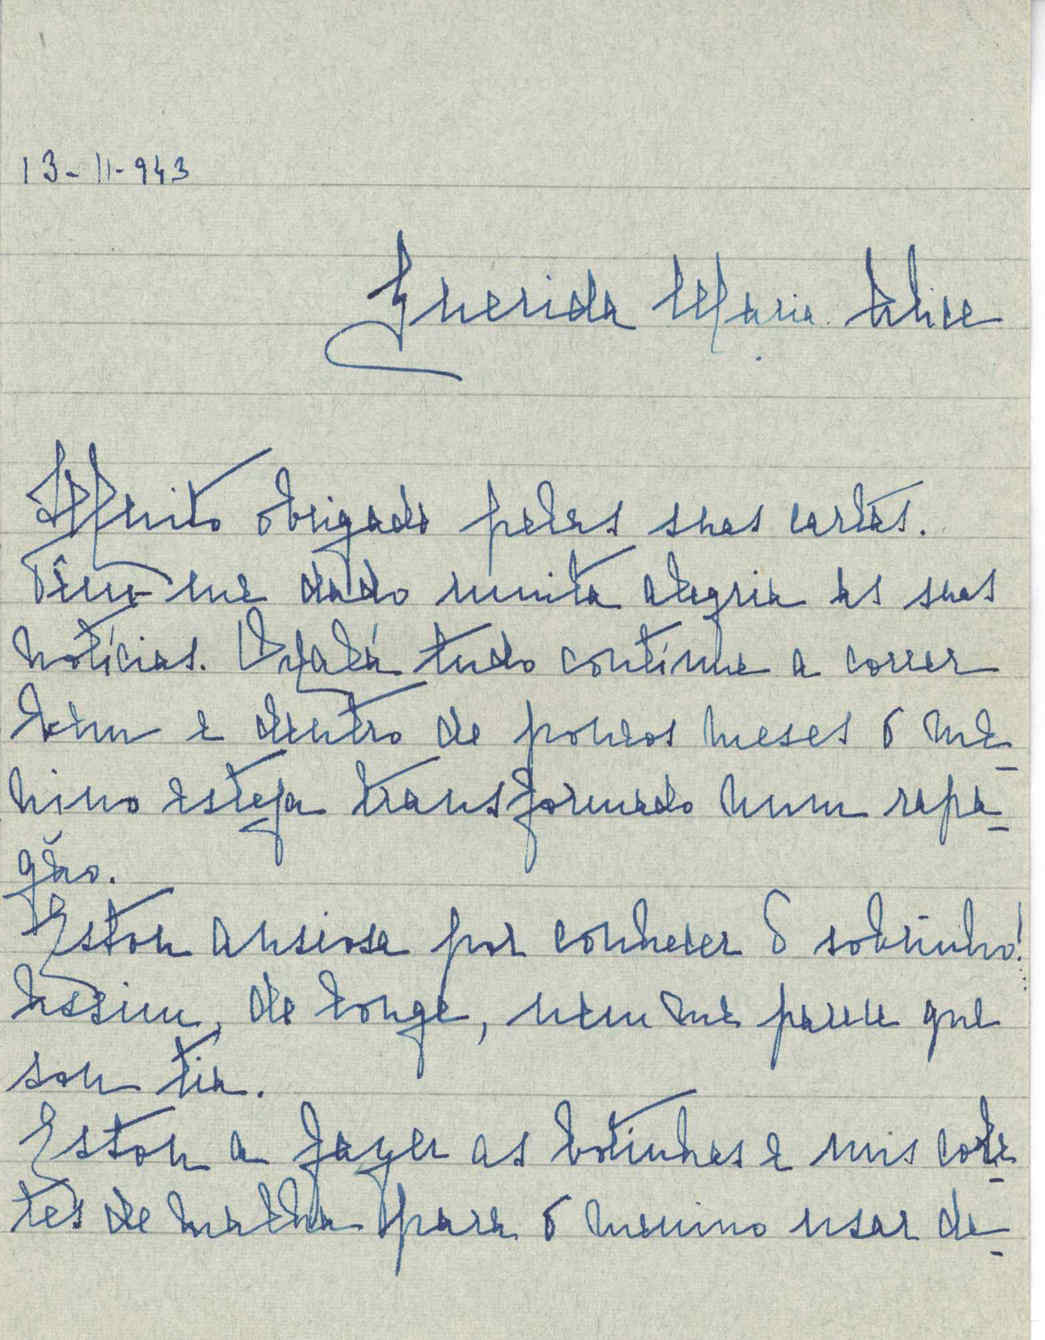 13-11-943
Querida Maria Alice
Muito obrigada pelas suas cartas.
Têm-me dado muita alegria as suas
notícias. Oxalá tudo continue a correr
bem e dentro de poucos meses o me-
nino esteja transformado num rapa-
gão.
Estou ansiosa por conhecer o sobrinho!
Assim, de longe, nem me parece que
sou tia.
Estou a fazer as botinhas e uns cole-
tes de malha para o menino usar de-